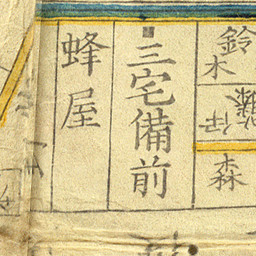 鈴木
伊藤
森
三宅備前
蜂屋